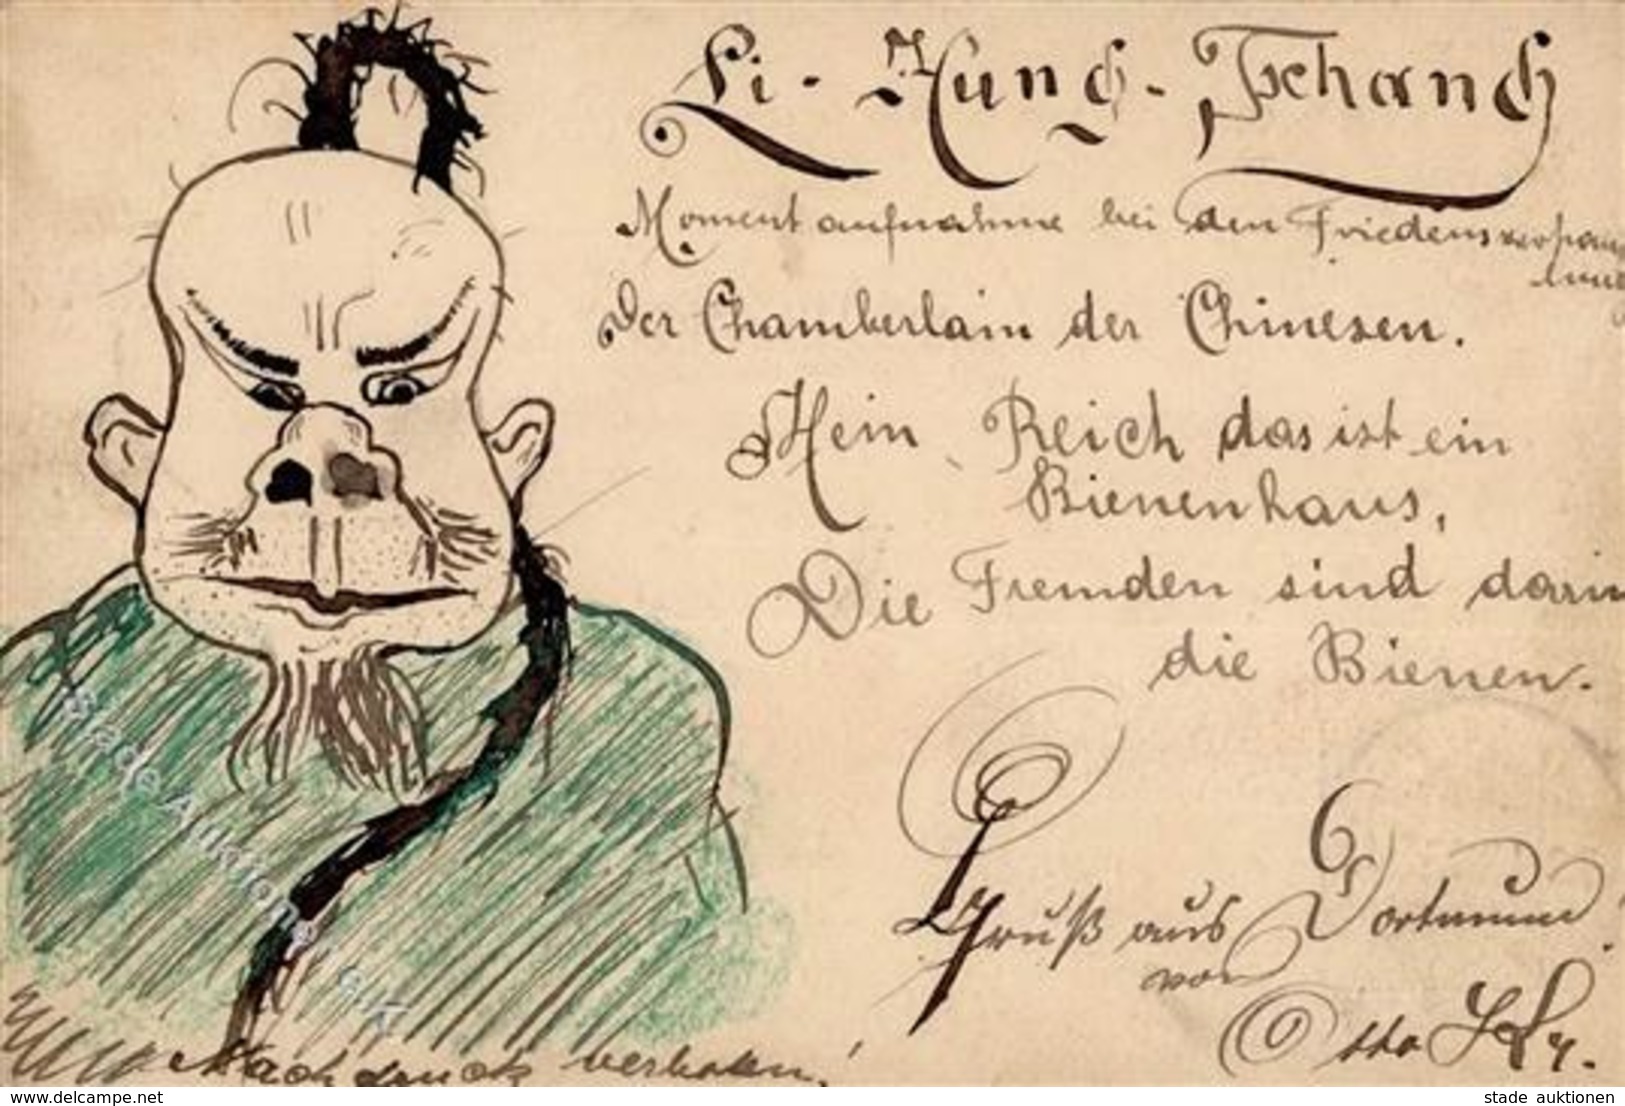 Li-Hung-Tschang
Momentaufnahme bei den Friedensverhand
lung
Der Chamberlain der Chinesen.
Mein Reich das ist ein
Bienenhaus,
Die Fremden sind darin
die Bienen.
Gruß aus Dortmund
von
Otto
Nachdruck verboten!
Stade Auktionen
www.delcampe.net
stade_auktionen